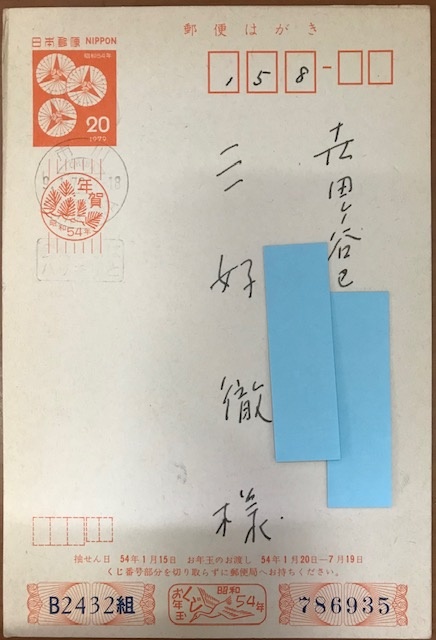 郵便はがき
日本郵便 NIPPON
昭和54年
20
1979
158-
年賀
昭和54年
世田谷区
三好徹様
抽せん日 54年1月15日 お年玉のお渡し 54年1月20日—7月19日
くじ番号部分を切り取らずに郵便局へお持ちください。
B2432組
お年玉くじ
昭和54年
786935